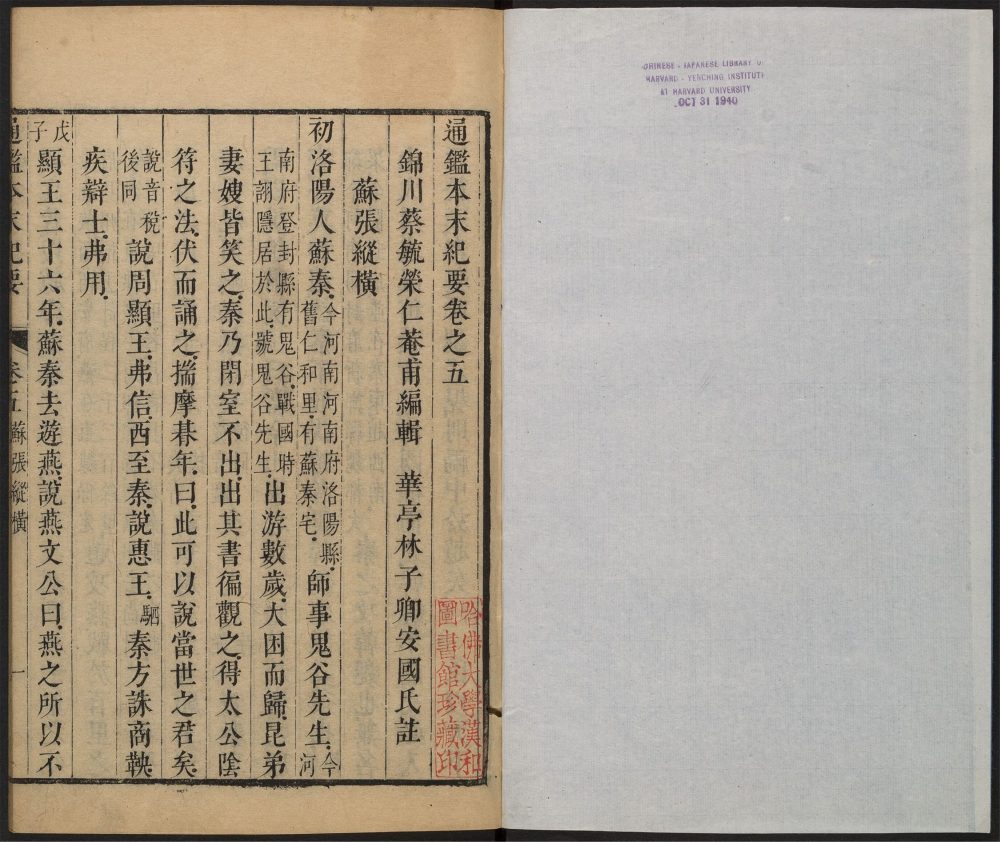 CHINESE - JAPANESE LIBRARY O
HARVARD - YENCHING INSTITUT
AT HARVARD UNIVERSITY
OCT 31 1940
通鑑本末紀要卷之五
哈佛大學漢和
圖書館珍藏印
錦川蔡毓榮仁菴甫編輯　華亭林子卿安國氏註
蘇張縱橫
初洛陽人蘇秦今河南河南府洛陽縣舊仁和里有蘇秦宅師事鬼谷先生今河
南府登封縣有鬼谷戰國時王詡隱居於此號鬼谷先生出游數歲大困而歸昆弟
妻嫂皆笑之秦乃閉室不出出其書徧觀之得太公陰
符之法伏而誦之揣摩朞年曰此可以說當世之君矣
說音稅後同說周顯王弗信西至秦說惠王駟秦方誅商鞅
疾辯士弗用
戊子顯王三十六年蘇秦去遊燕說燕文公曰燕之所以不
通鑑本末紀要　卷五　蘇張縱橫　一